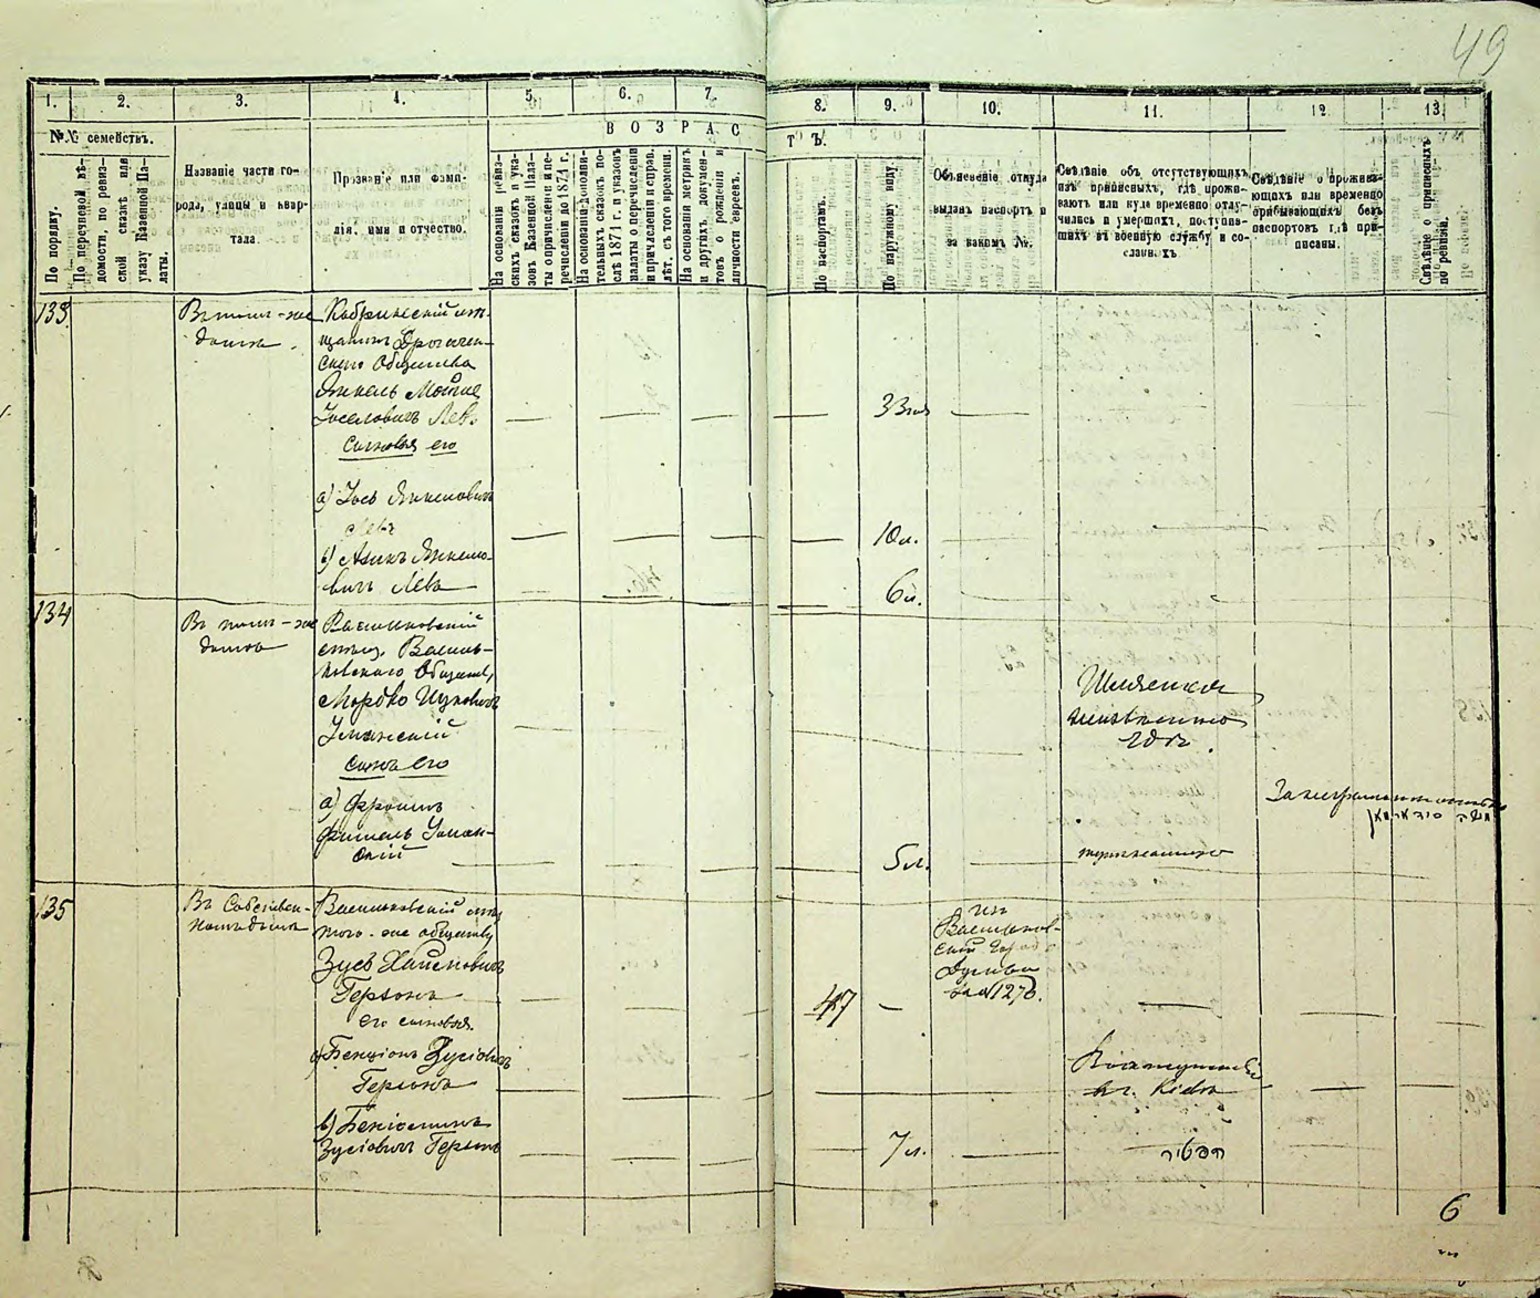 49
1.
2.
3.
4.
5.
6.
7.
8.
9.
10.
11.
12
13.
№№ семействъ.
ВОЗРАС
ТЪ.
По порядку.
По перечневой вѣ-
домости, по ревиз-
ской сказкѣ или
указу Казенной Па-
латы.
Названіе части го-
рода, улицы и квар-
тала
Прозваніе или фами-
лія, имя и отчество.
На основаніи ревиз-
скихъ сказокъ и ука-
зовъ Казенной Пала-
ты о причисленіи и пе-
речисленіи до 1874 г.
На основаніи дополни-
тельныхъ сказокъ по-
слѣ 1874 г. и указовъ
палаты о перечисленіи
и причисленіи и справ.
лѣт. съ того времени.
На основаніи метрикъ
и другихъ докумен-
товъ о рожденіи и
личности евреевъ.
По паспортамъ.
По наружному виду.
Объясненіе откуда
выданъ паспортъ и
за какимъ №.
Свѣдѣніе объ отсутствующихъ
изъ приписныхъ, гдѣ прожи-
ваютъ или куда временно отлу-
чились и умершихъ, поступив-
шихъ въ военную службу и со-
сланныхъ
Свѣдѣніе о прожива-
ющихъ или временно
прибывающихъ безъ
паспортовъ гдѣ при-
писаны.
Свѣдѣніе о приписныхъ
по ревизіи.
133.
Въ томъ-же
домѣ.
Кобринскій мѣ-
щанинъ Дрогичен-
скаго Общества
Янкель Мошко
Іоселовичъ Левъ
сыновья его
33 л.
а) Іось Янкелевичъ
Левъ
10 л.
б) Аликъ Янкеле-
вичъ Левъ
6 л.
134
Въ томъ-же
домѣ
Васильковскій
мѣщ. Василь-
ковскаго Общест.
Мордко Ицковичъ
Уманскій
сынъ его
неизвѣстно
гдѣ.
а) Фроимъ
Фишель Уман-
скій
5 л.
За неграмотностью
135
Въ Собствен-
номъ домѣ
Васильковскій мѣщ
того-же общества
Зусь Хаимовичъ
Герзонъ
его сыновья.
47
изъ
Васильков-
ской Город
Думы
за № 1276.
а) Бенціонъ Зусіовичъ
Герзонъ
въ г. Кіевѣ
б) Бенюминъ
Зусіовичъ Герзонъ
7 л.
6